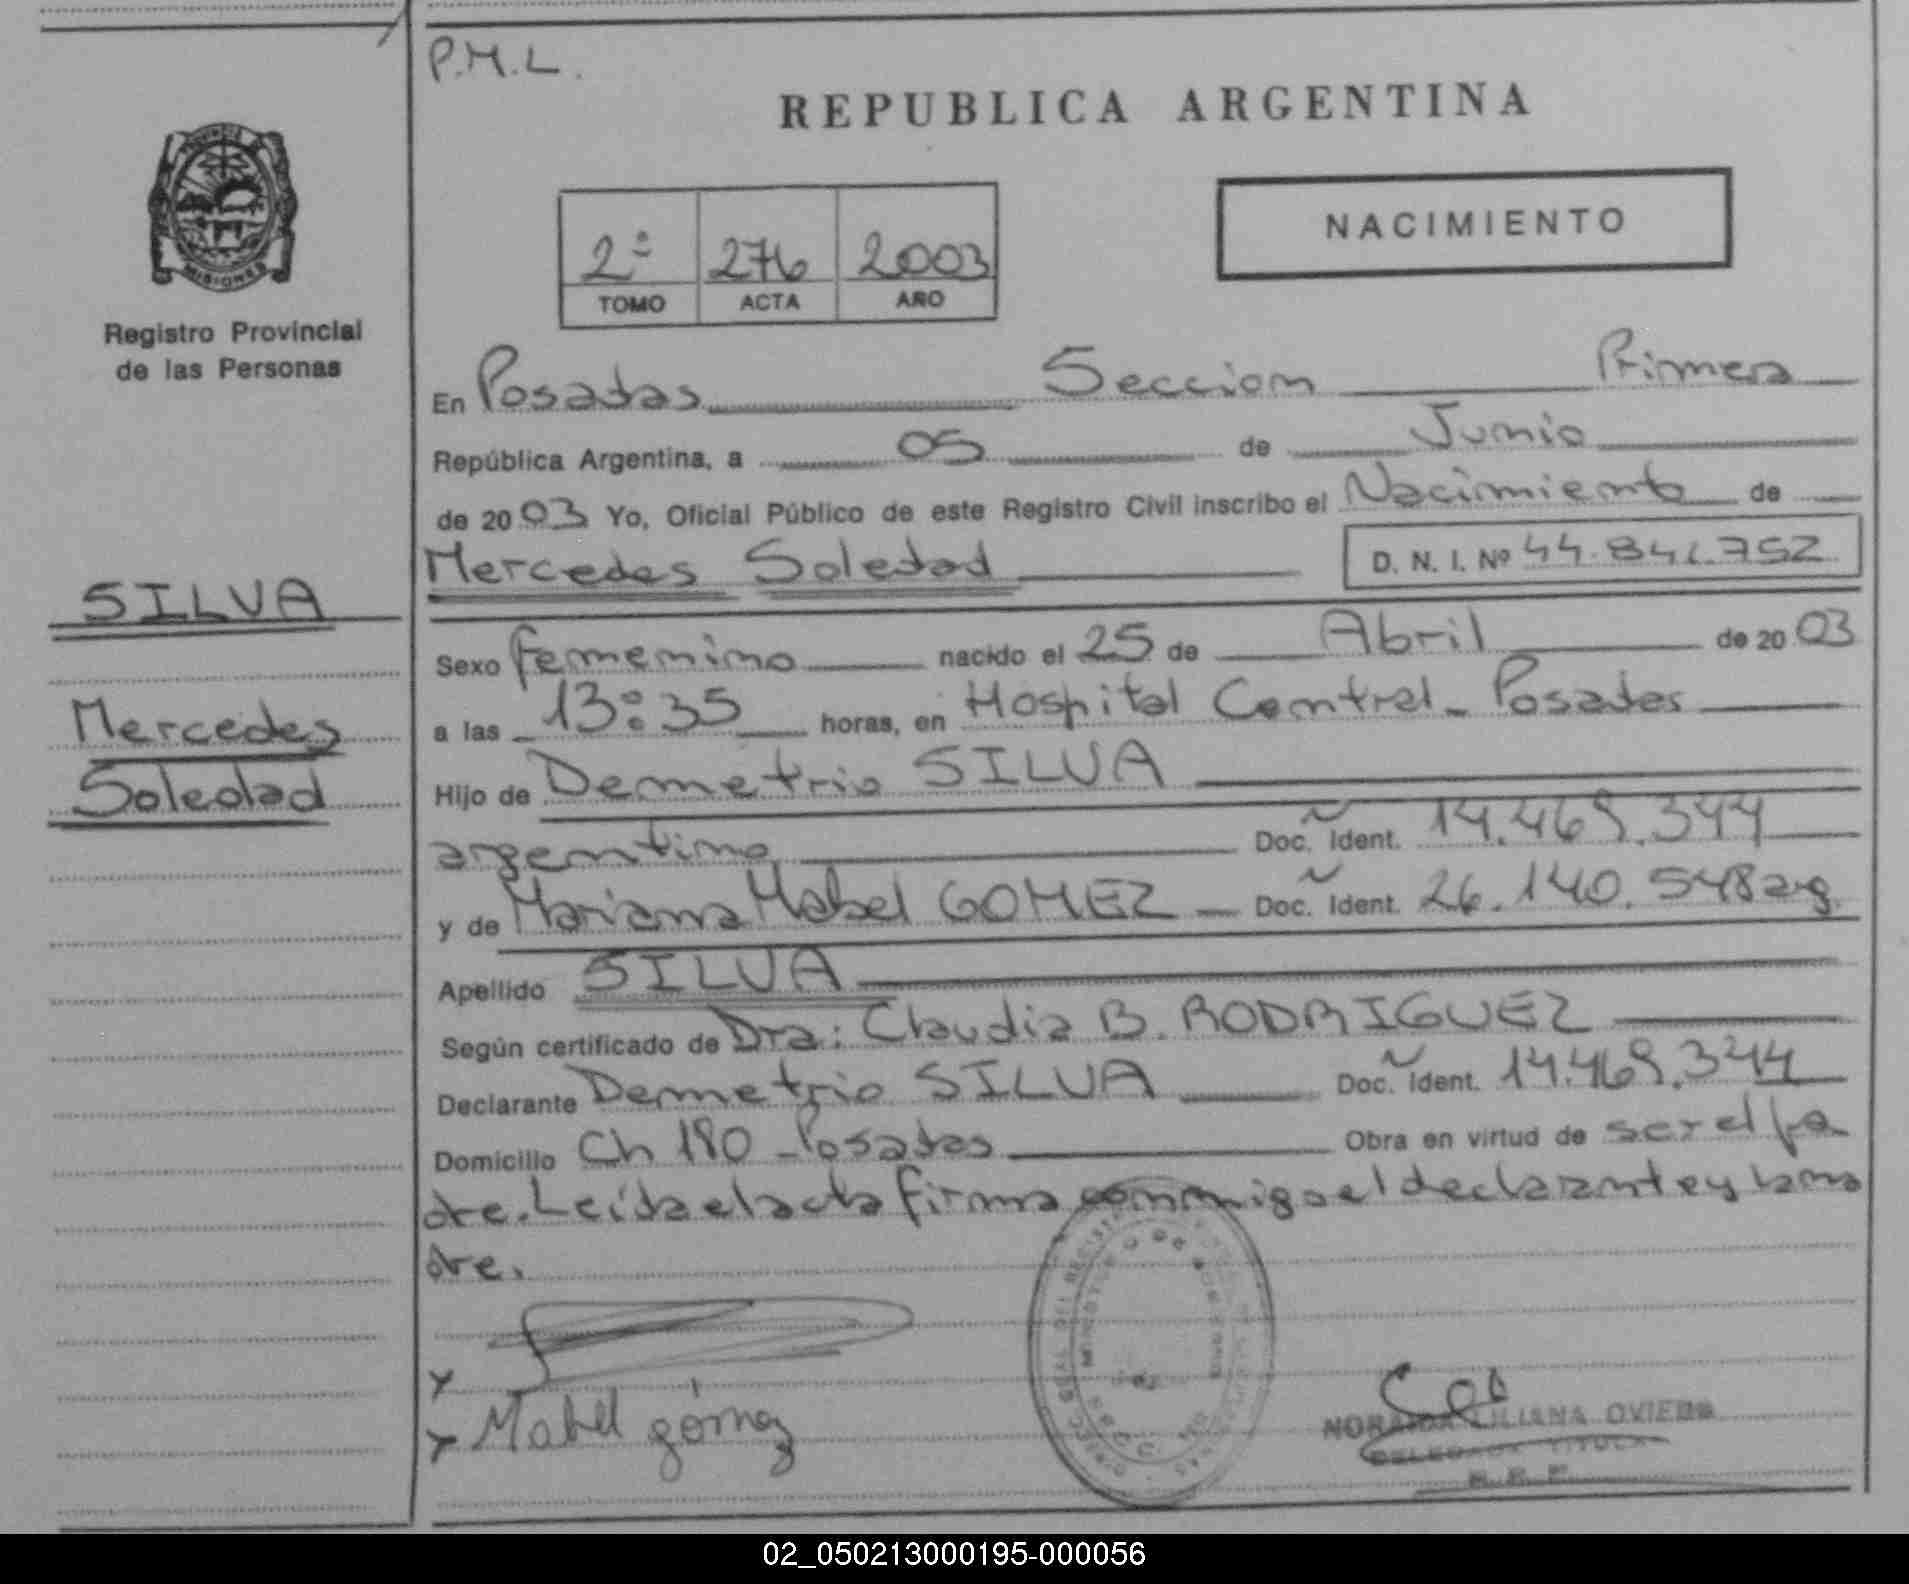 P.M.L.
REPUBLICA ARGENTINA
MISIONES
Registro Provincial
de las Personas
2º 276 2003
TOMO ACTA AÑO
NACIMIENTO
En Posadas Seccion Primera
República Argentina, a 05 de Junio
de 2003 Yo, Oficial Público de este Registro Civil inscribo el Nacimiento de
Mercedes Soledad D. N. I. Nº 44.841.752
SILVA
Mercedes
Soledad
Sexo femenino nacido el 25 de Abril de 2003
a las 13:35 horas, en Hospital Central - Posadas
Hijo de Demetrio SILVA
argentino Doc. Ident. 14.469.344
y de Mariana Mabel GOMEZ Doc. Ident. 26.140.548 arg.
Apellido SILVA
Según certificado de Dra: Claudia B. RODRIGUEZ
Declarante Demetrio SILVA Doc. Ident. 14.469.344
Domicilio Ch 190 - Posadas Obra en virtud de ser el pa
dre. Leída el acta firma conmigo el declarante y la ma
dre.
x
x Mabel gómez
LILIANA OVIEDO
02_050213000195-000056